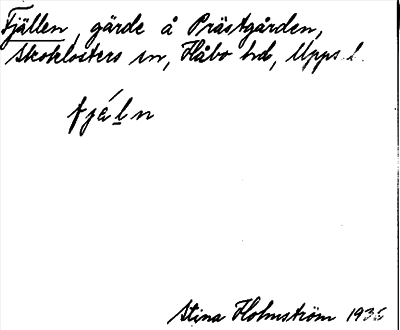 Fjällen, gärde å Prästgården,
Skoklosters sn, Håbo hd, Upps. l.
fjɛ́ḷn
Stina Holmström